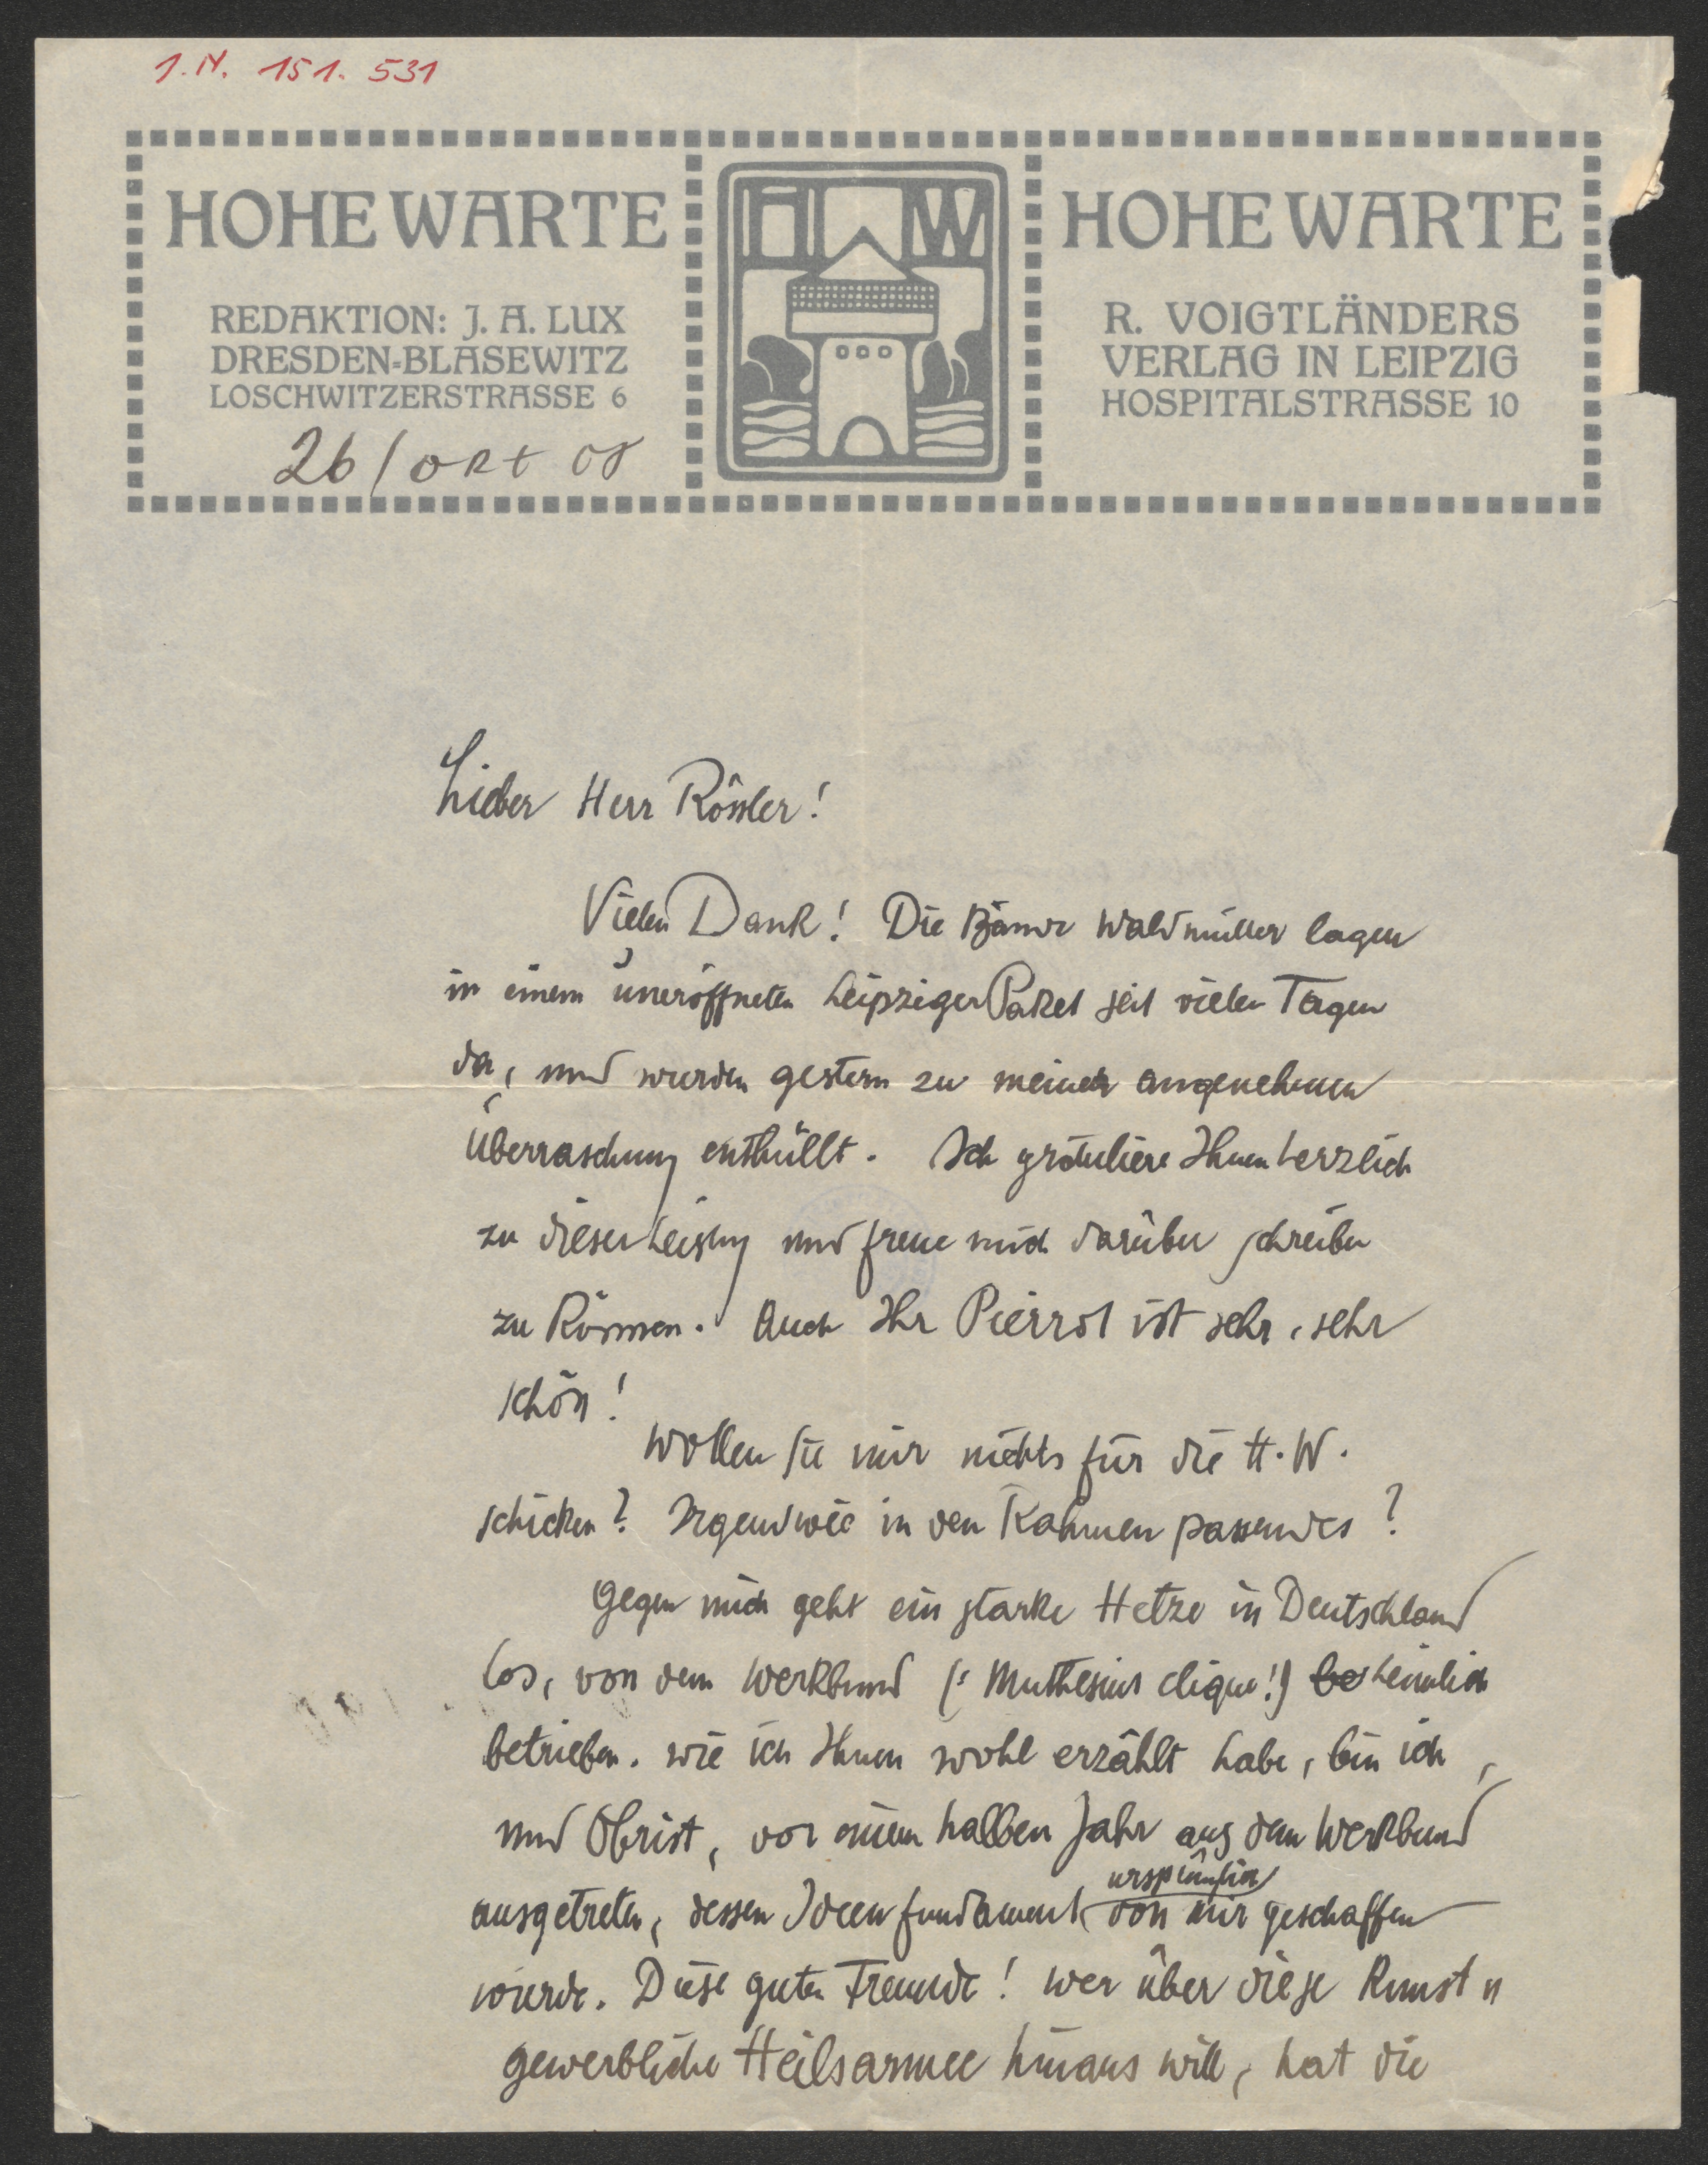 J.N. 151.531
HOHE WARTE
REDAKTION: J. A. LUX
DRESDEN-BLASEWITZ
LOSCHWITZERSTRASSE 6
26/okt 08
HW
HOHE WARTE
R. VOIGTLÄNDERS
VERLAG IN LEIPZIG
HOSPITALSTRASSE 10
Lieber Herr Rössler!
Vielen Dank! Die Bände Waldmüller lagen
in einem uneröffneten Leipziger Paket seit vielen Tagen
da, und wurden gestern zu meiner angenehmen
Überraschung enthüllt. Ich gratuliere Ihnen herzlich
zu dieser Leistung und freue mich darüber schreiben
zu können. Auch Ihr Pierrot ist sehr, sehr
schön!
Wollen Sie mir nichts für die H.W.
schicken? Irgendwie in den Rahmen passendes?
Gegen mich geht ein starke Hetze in Deutschland
los, von dem Werkbund (: Muthesius clique!) heimlich
betrieben. Wie ich Ihnen wohl erzählt habe, bin ich,
und Obrist, vor einem halben Jahr aus dem Werkbund
ausgetreten, dessen Ideenfundament ursprünglich von mir geschaffen
wurde. Diese guten Freunde! Wer über diese Kunst
gewerbliche Heilsarmee hinaus will, hat die